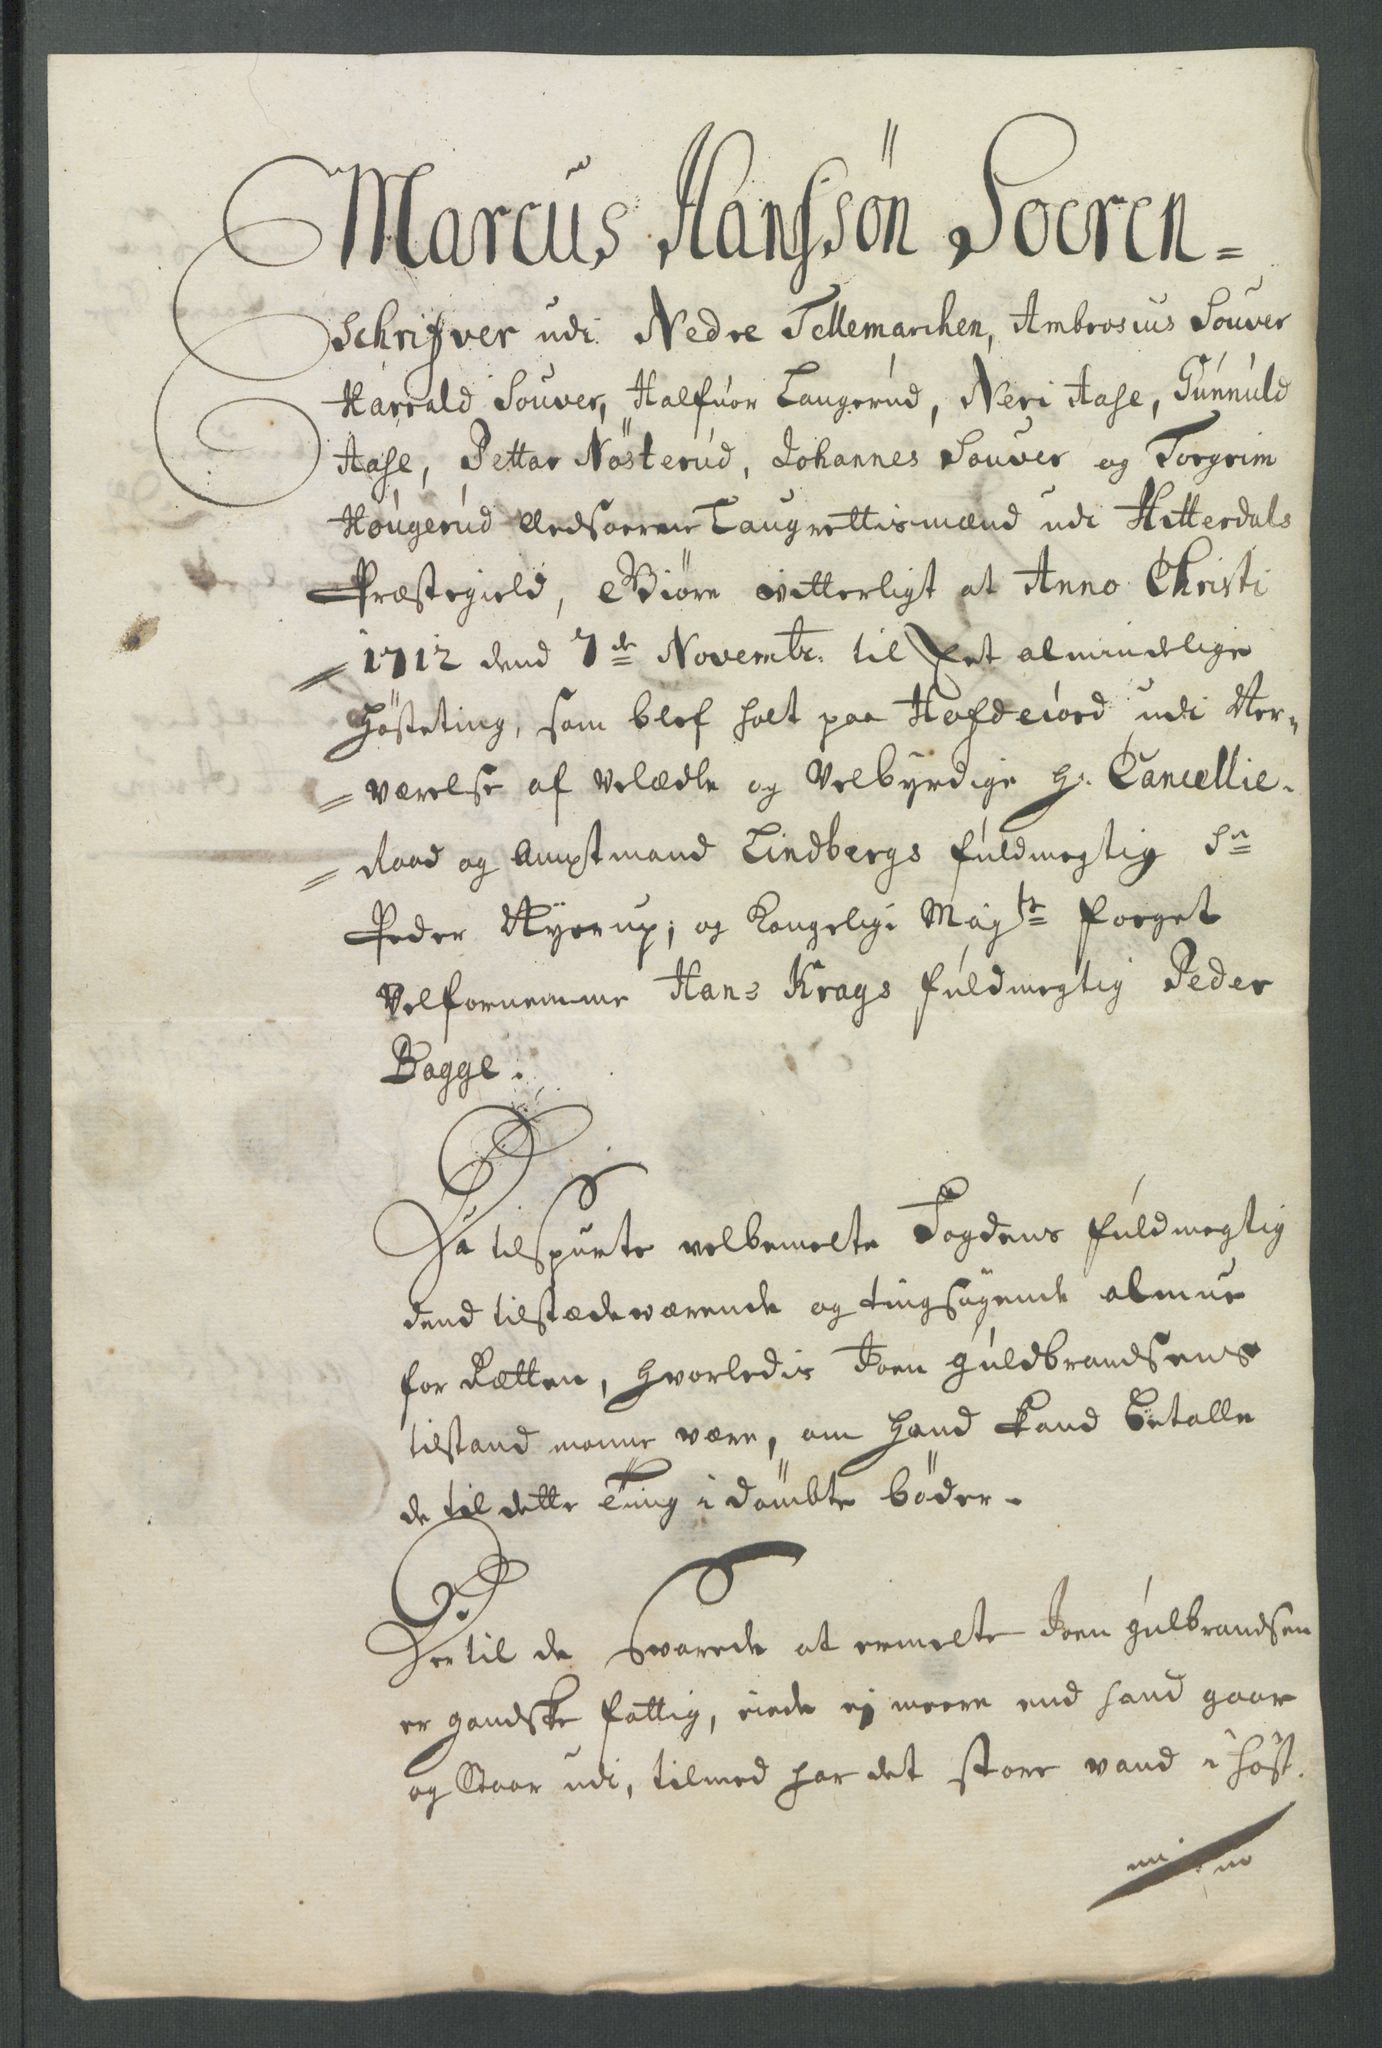 Marcus Hansøn Soeren=
schrifver udi Nedre Tellemarchen, Ambrosius Souver
Harrald Souver, Halfuor Laugerud, Neri Aase, Gunnuld
Aase, Pettar Nösterud, Johannes Souver og Torgrim
Hougerud Ædsoerne Laugrettismænd udi Hitterdals
Præstegield, Giöre vitterligt at Anno Christi
1712 dend 7de Novembr. til Eet almindelige
Hösteting, som blef holt paa Hafdeiord udi Nær=
værelse af Velædle og Velbyrdige Hr. Cancellie=
Raad og Amptmand Lindbergs fuldmegtig Sr
Peder Nyerup; og Kongelige Mayts foeget
Velfornemme Hans Krags fuldmegtig Peder
Bagge.
Da tilspurte velbemelte Fogdens fuldmegtig
dend tilstædeværende og tingsøgende almue
for Rætten, hvorledis Joen Guldbrandsens
tilstand monne være, om hand kand betalle
de til dette Ting idömbte böder.
Her til de Svarede at ermelte Joen Gulbrandsen
er gandske fattig, eiede ej meere end hand gaar
og Staar udi, tilmed har det store vand i höst